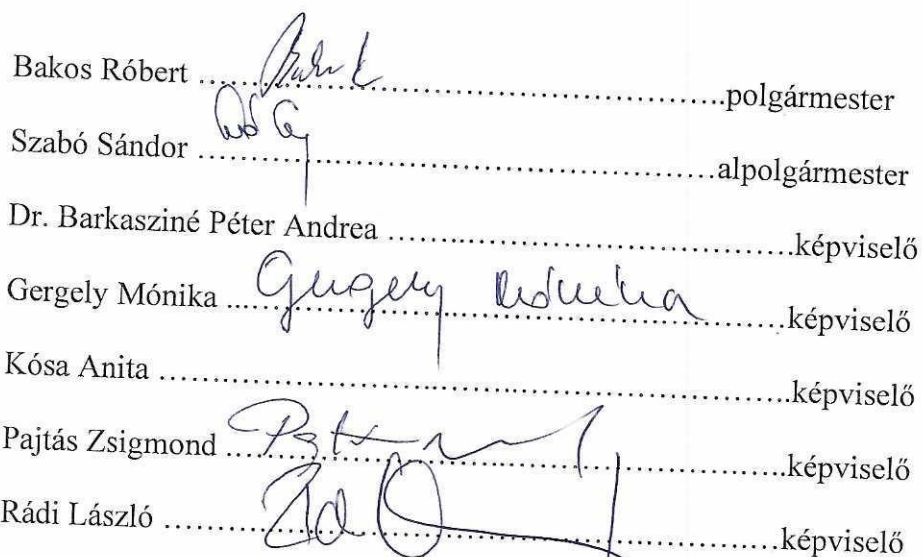 Bakos Róbert ........................................................polgármester
Szabó Sándor ........................................................alpolgármester
Dr. Barkasziné Péter Andrea ............................................képviselő
Gergely Mónika Gergely Mónika ............................................képviselő
Kósa Anita ................................................................képviselő
Pajtás Zsigmond ........................................................képviselő
Rádi László ............................................................képviselő